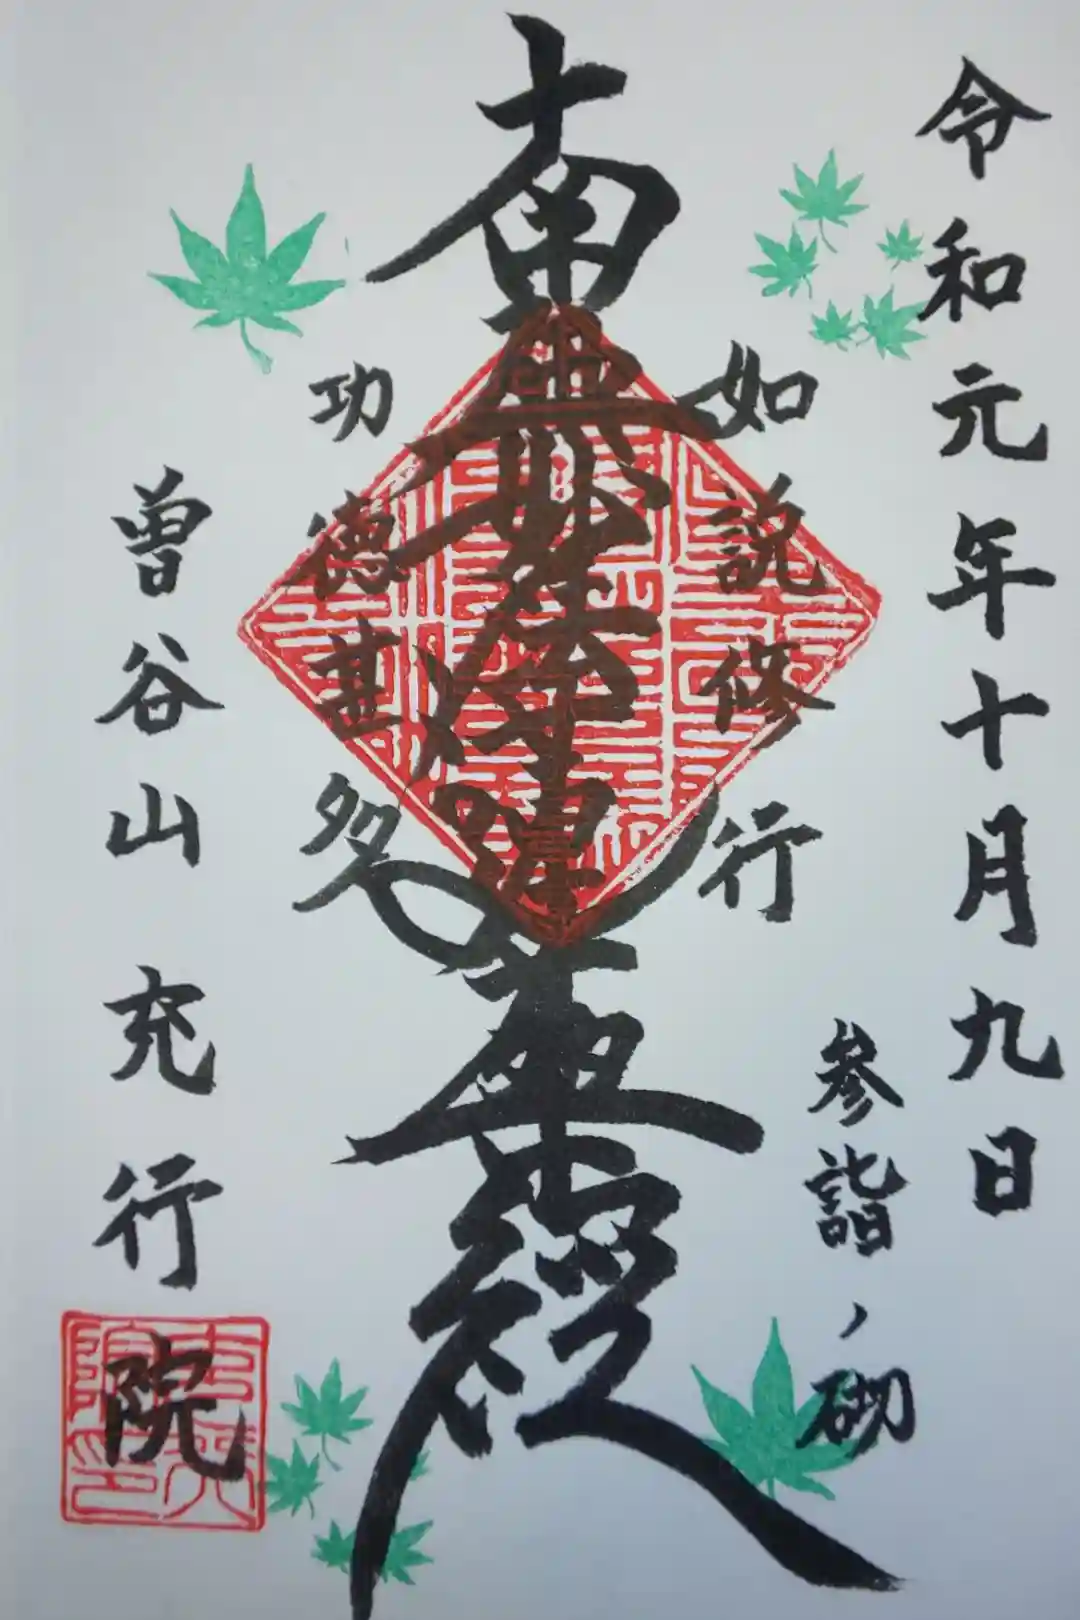 令和元年十月九日
参詣ノ砌
如説修行
南無妙法蓮華経
功徳甚多
曽谷山 充行院